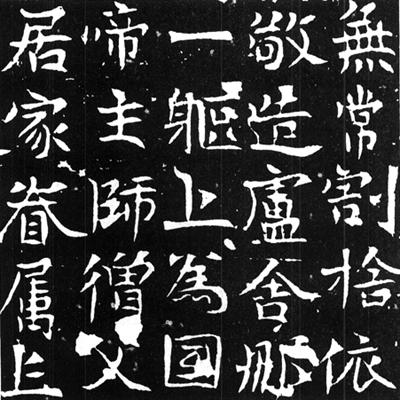 無常割捨依
敬造盧舍那
一軀上為國
啼主師僧父
居家眷属